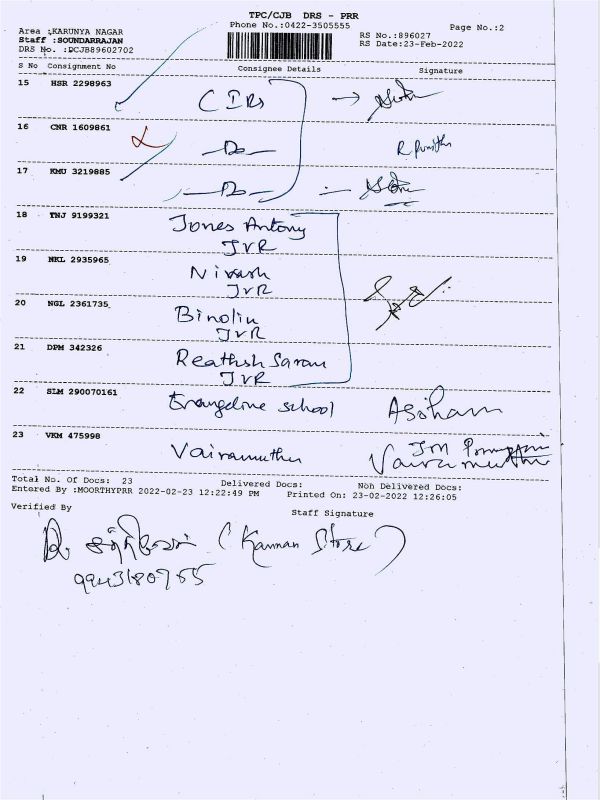 TPC/CJB DRS - PRR
Phone No.:0422-3505555
Page No.:2
Area :KARUNYA NAGAR
Staff :SOUNDARRAJAN
DRS No. :PCJB89602702
RS No.:896027
RS Date:23-Feb-2022
S No Consignment No Consignee Details Signature
15 HSR 2298963 CIRs
16 CNR 1609861 —Do— R Punitha
17 KMU 3219885 —Do—
18 TNJ 9199321 Jones Antony
JVR
19 NKL 2935965 Nivash
JVR
20 NGL 2361735 Binolin
JVR
21 DPM 342326 Saran
JVR
22 SLM 290070161 Evangeline school
23 VKM 475998 Vairamuthu
Vairamuthu
Total No. Of Docs: 23 Delivered Docs: Non Delivered Docs:
Entered By :MOORTHYPRR 2022-02-23 12:22:49 PM Printed On: 23-02-2022 12:26:05
Verified By Staff Signature
(Kannan Store)
9943180755